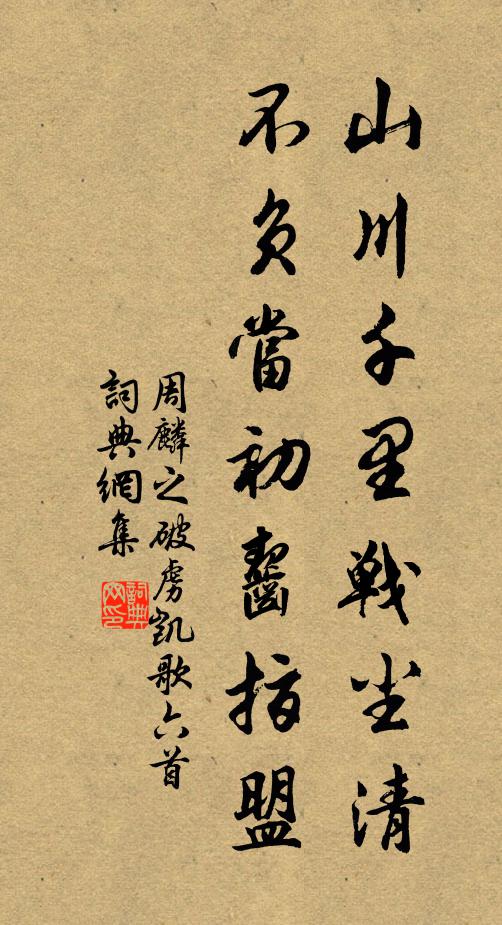 山川千里戦尘清
不负當初齧指盟
周麟之破虏凱歌六首
詞典網集
詞典网印